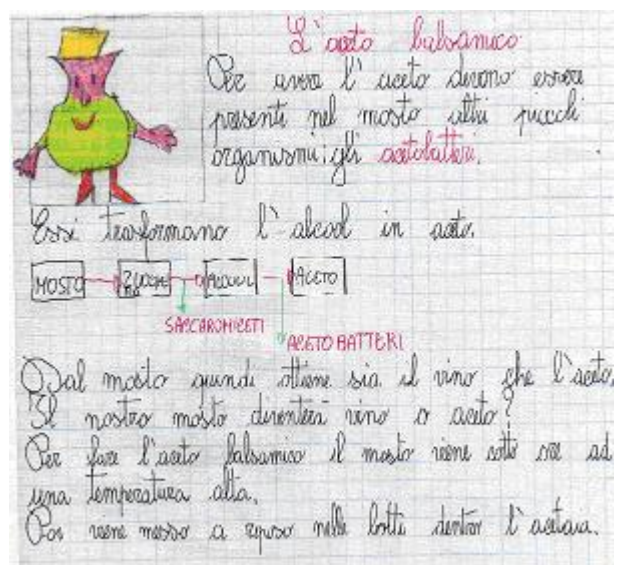 L'aceto balsamico
Per avere l'aceto devono essere
presenti nel mosto altri piccoli
organismi: gli acetobatteri.
Essi trasformano l'alcool in aceto.
MOSTO ZUCCHERO ALCOOL ACETO
SACCAROMICETI
ACETOBATTERI
Dal mosto quindi ottiene sia il vino che l'aceto.
Il nostro mosto diventerà vino o aceto?
Per fare l'aceto balsamico il mosto viene cotto ore ad
una temperatura alta.
Poi viene messo a riposo nelle botti dentro l'acetaia.